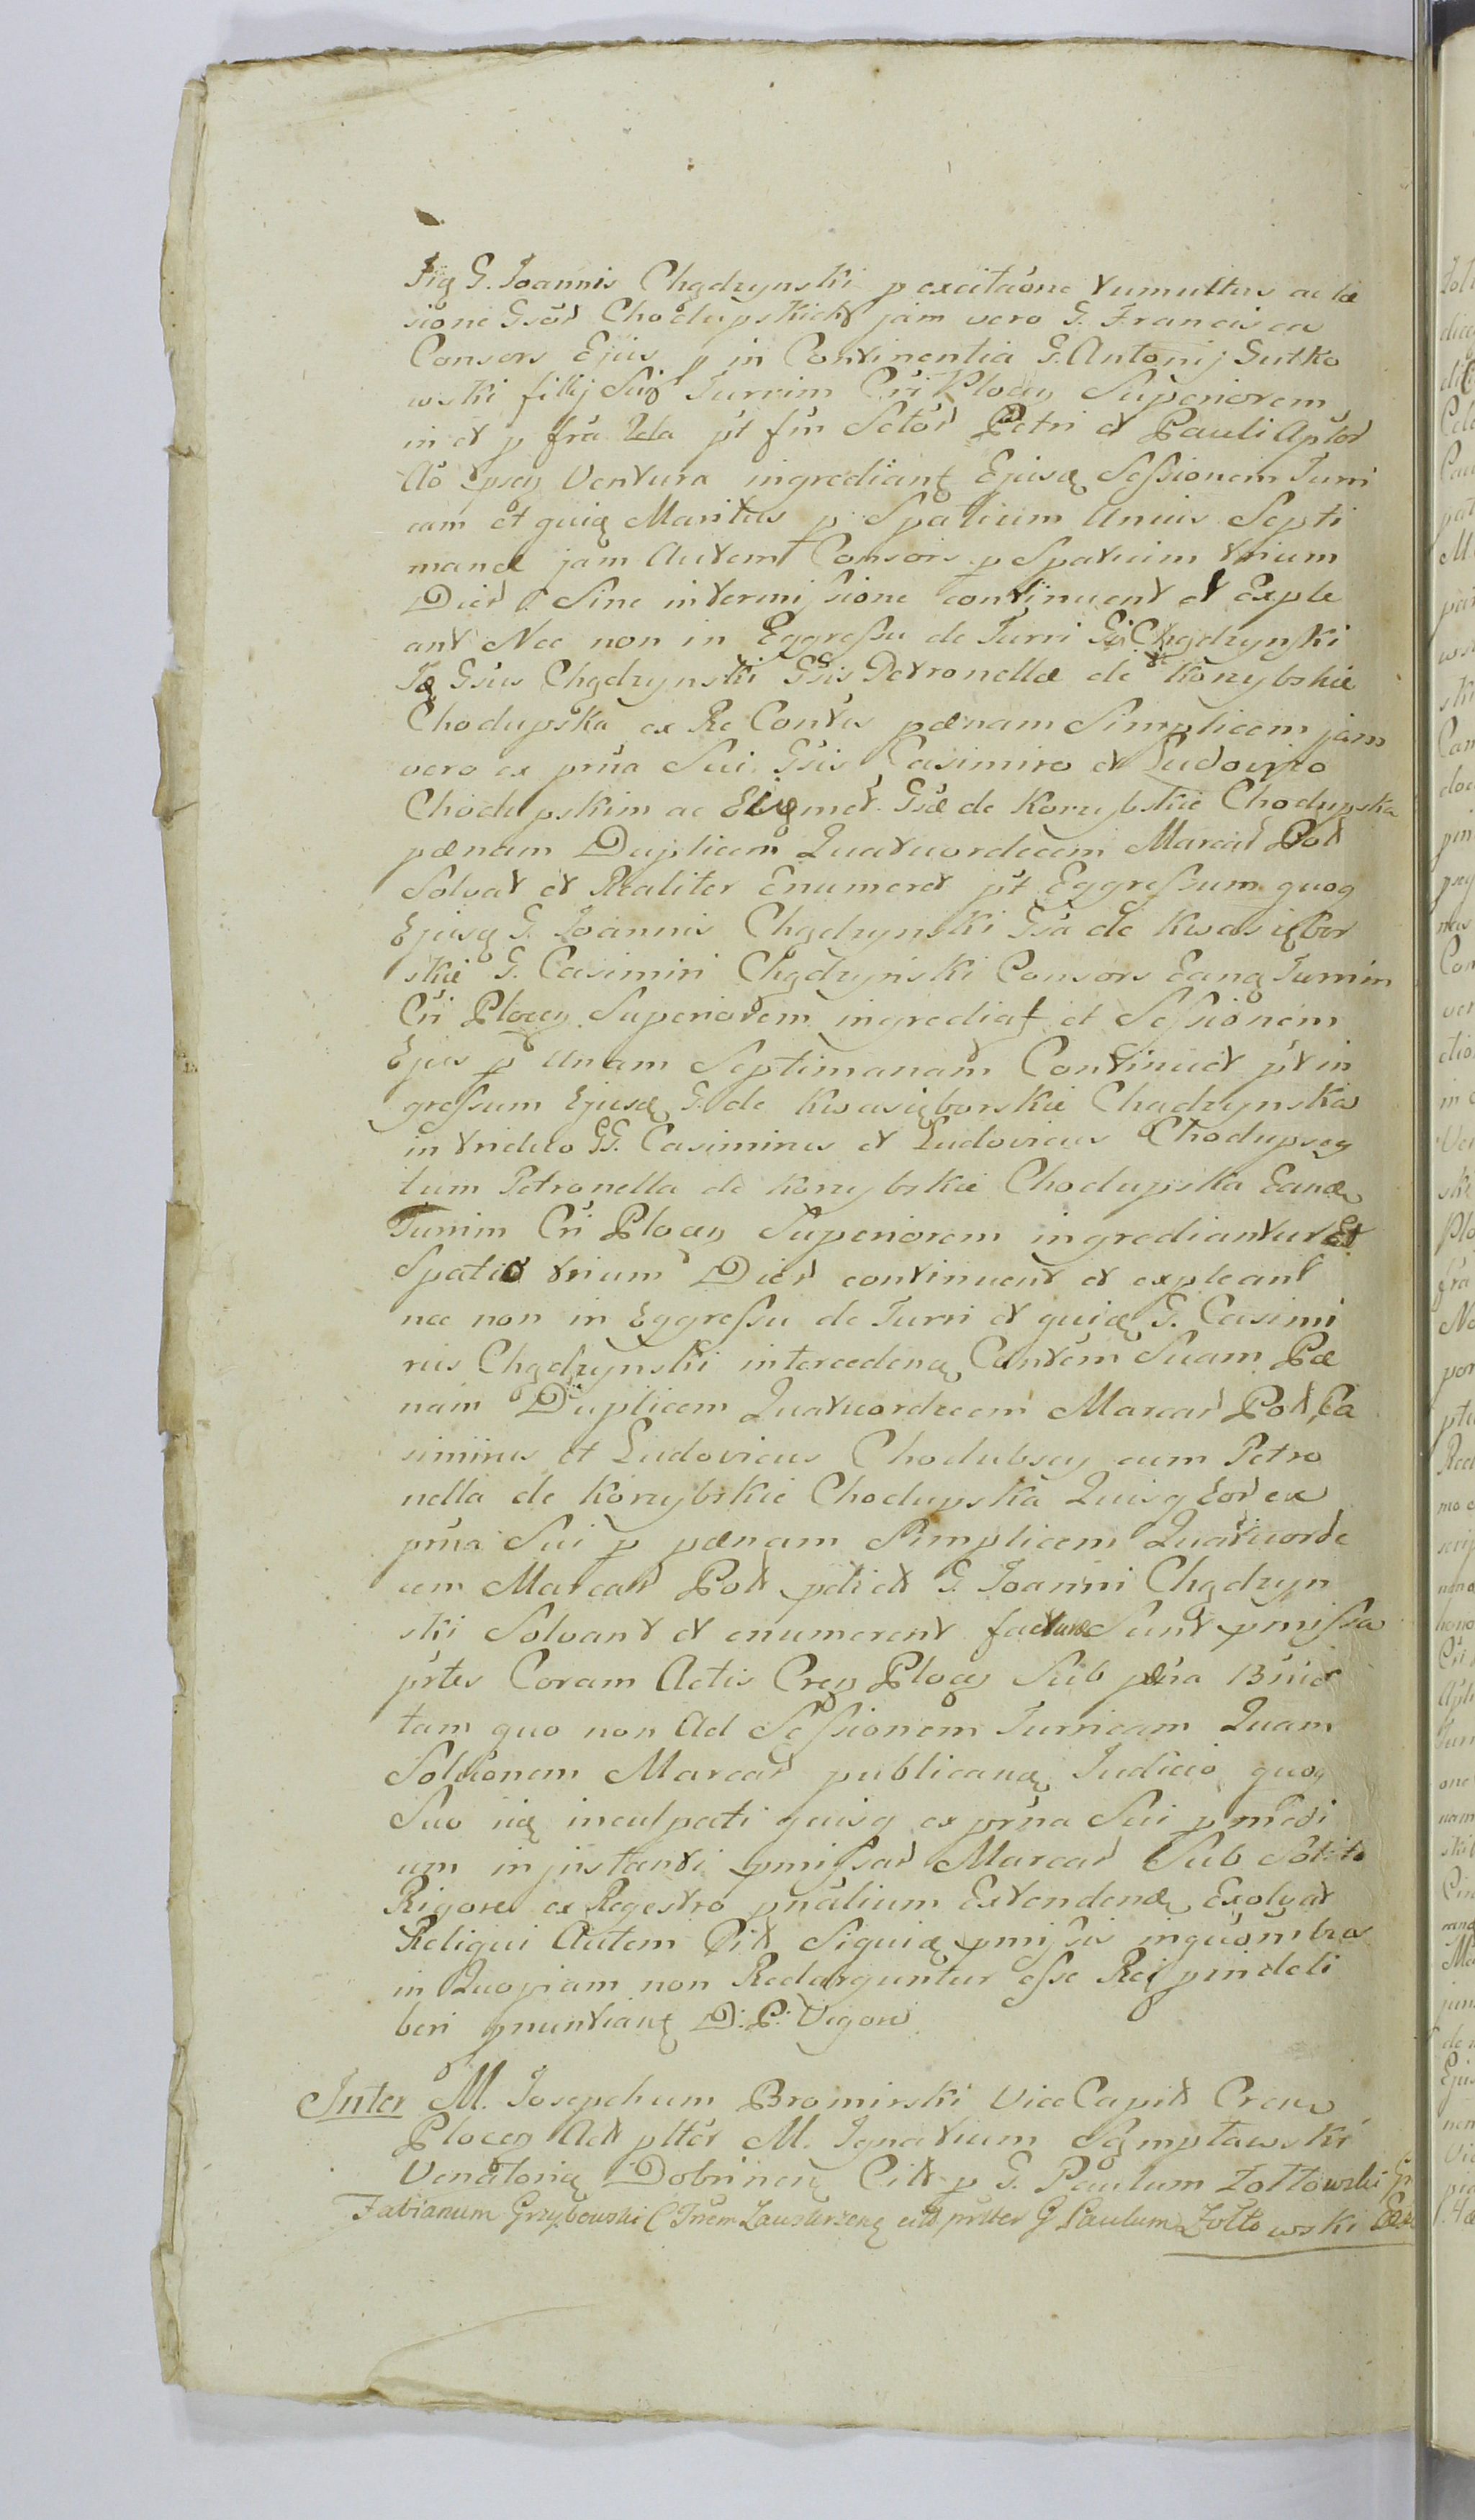 Tią G. Joannis Chądzynski p excitaóne tumultus ac læ
sione Gsór Chodupskich jam vero G. Francisca
Consors Ejus p in Continentia G. Antonij Sutko
wski filij Sui Turrim Cri Plocen Superiorem
in et p fra Ida pt fin Sctór Petri et Pauli Aplor
Ao psen Ventura ingrediant Ejusq Sessionem Turri
cam et quiq Maritus p Spatium Unius Septi
manæ jam Autem Consors p Spatium trium
Dier Sine intermissione continuent et exple
ant Nec non in Eggressu de Turri Chądzynski
Gsus Chądzynski Gsis Petronellæ de Korzybskie
Chodupska ex Re Contis pænam Simplicem jam
vero ex prna Sui Gsis Casimiro et Ludovico
Chodupskim ac Eiqmet Gsæ de Korzybskie Chodupska
pænam Duplicem Quatuordecem Marcar Pol
Solvat et Realiter Enumeret pt Eggressum quoq
Ejusq G. Joannis Chądzynski Gsa de Kwasiębor
skie G. Casimiri Chądzynski Consors Eanq Turrim
Cri Plocen Superiorem ingrediat et Sessionem
Ejus p Unam Septimanam Continuet pt in
gressum Ejusq G. de Kwasięborskie Chądzynska
in triduo GG. Casimirus et Ludovicus Chodupscy
tum Petronella de Korzybskie Chodupska Eanq
Turrim Cri Plocen Superiorem ingrediantur Et
Spatio trium Dier continuent et expleant
nec non in Eggressu de Turri et quiq G. Casimi
rus Chądzynski intercedenq Contem Suam Pæ
nam Duplicem Quatuordecem Marcar Pol Ca
simirus et Ludovicus Chodubscy cum Petro
nella de Korzybskie Chodupska Quisq Eor ex
prna Sui p pænam Simplicem Quatuorde
cem Marcar Pol pdict G. Joanni Chądzyn
ski Solvant et enumerent facturæ Sunt pmissa
prtes Coram Actis Cren Plocen Sub pæna Bniæ
tam quo non Ad Sessionem Turricam Quam
Soluonem Marcar publicanq Judicio quoq
Suo iiq inculpati quisq ex prna Sui p medi
um injustanti pmissar Marcar Sub Solito
Rigore ex Regestro pnalium Extendenq Exolvat
Religui Autem Cit Siquiq pmissis inquónibus
in Quopiam non Redarguntur esse Rei pindeli
beri pnuntiant D: P: Vigore
Inter M. Josephum Bromirski ViceCapit Crem
Plocen Act plter M. Ignatium Sąmpławski
Venatorią Dobrinen Cit p G. Paulum Zołtowski
Fabianum Grzybowski C Tnem Zauskrzeng cit prlter G Paulum Zołto wski